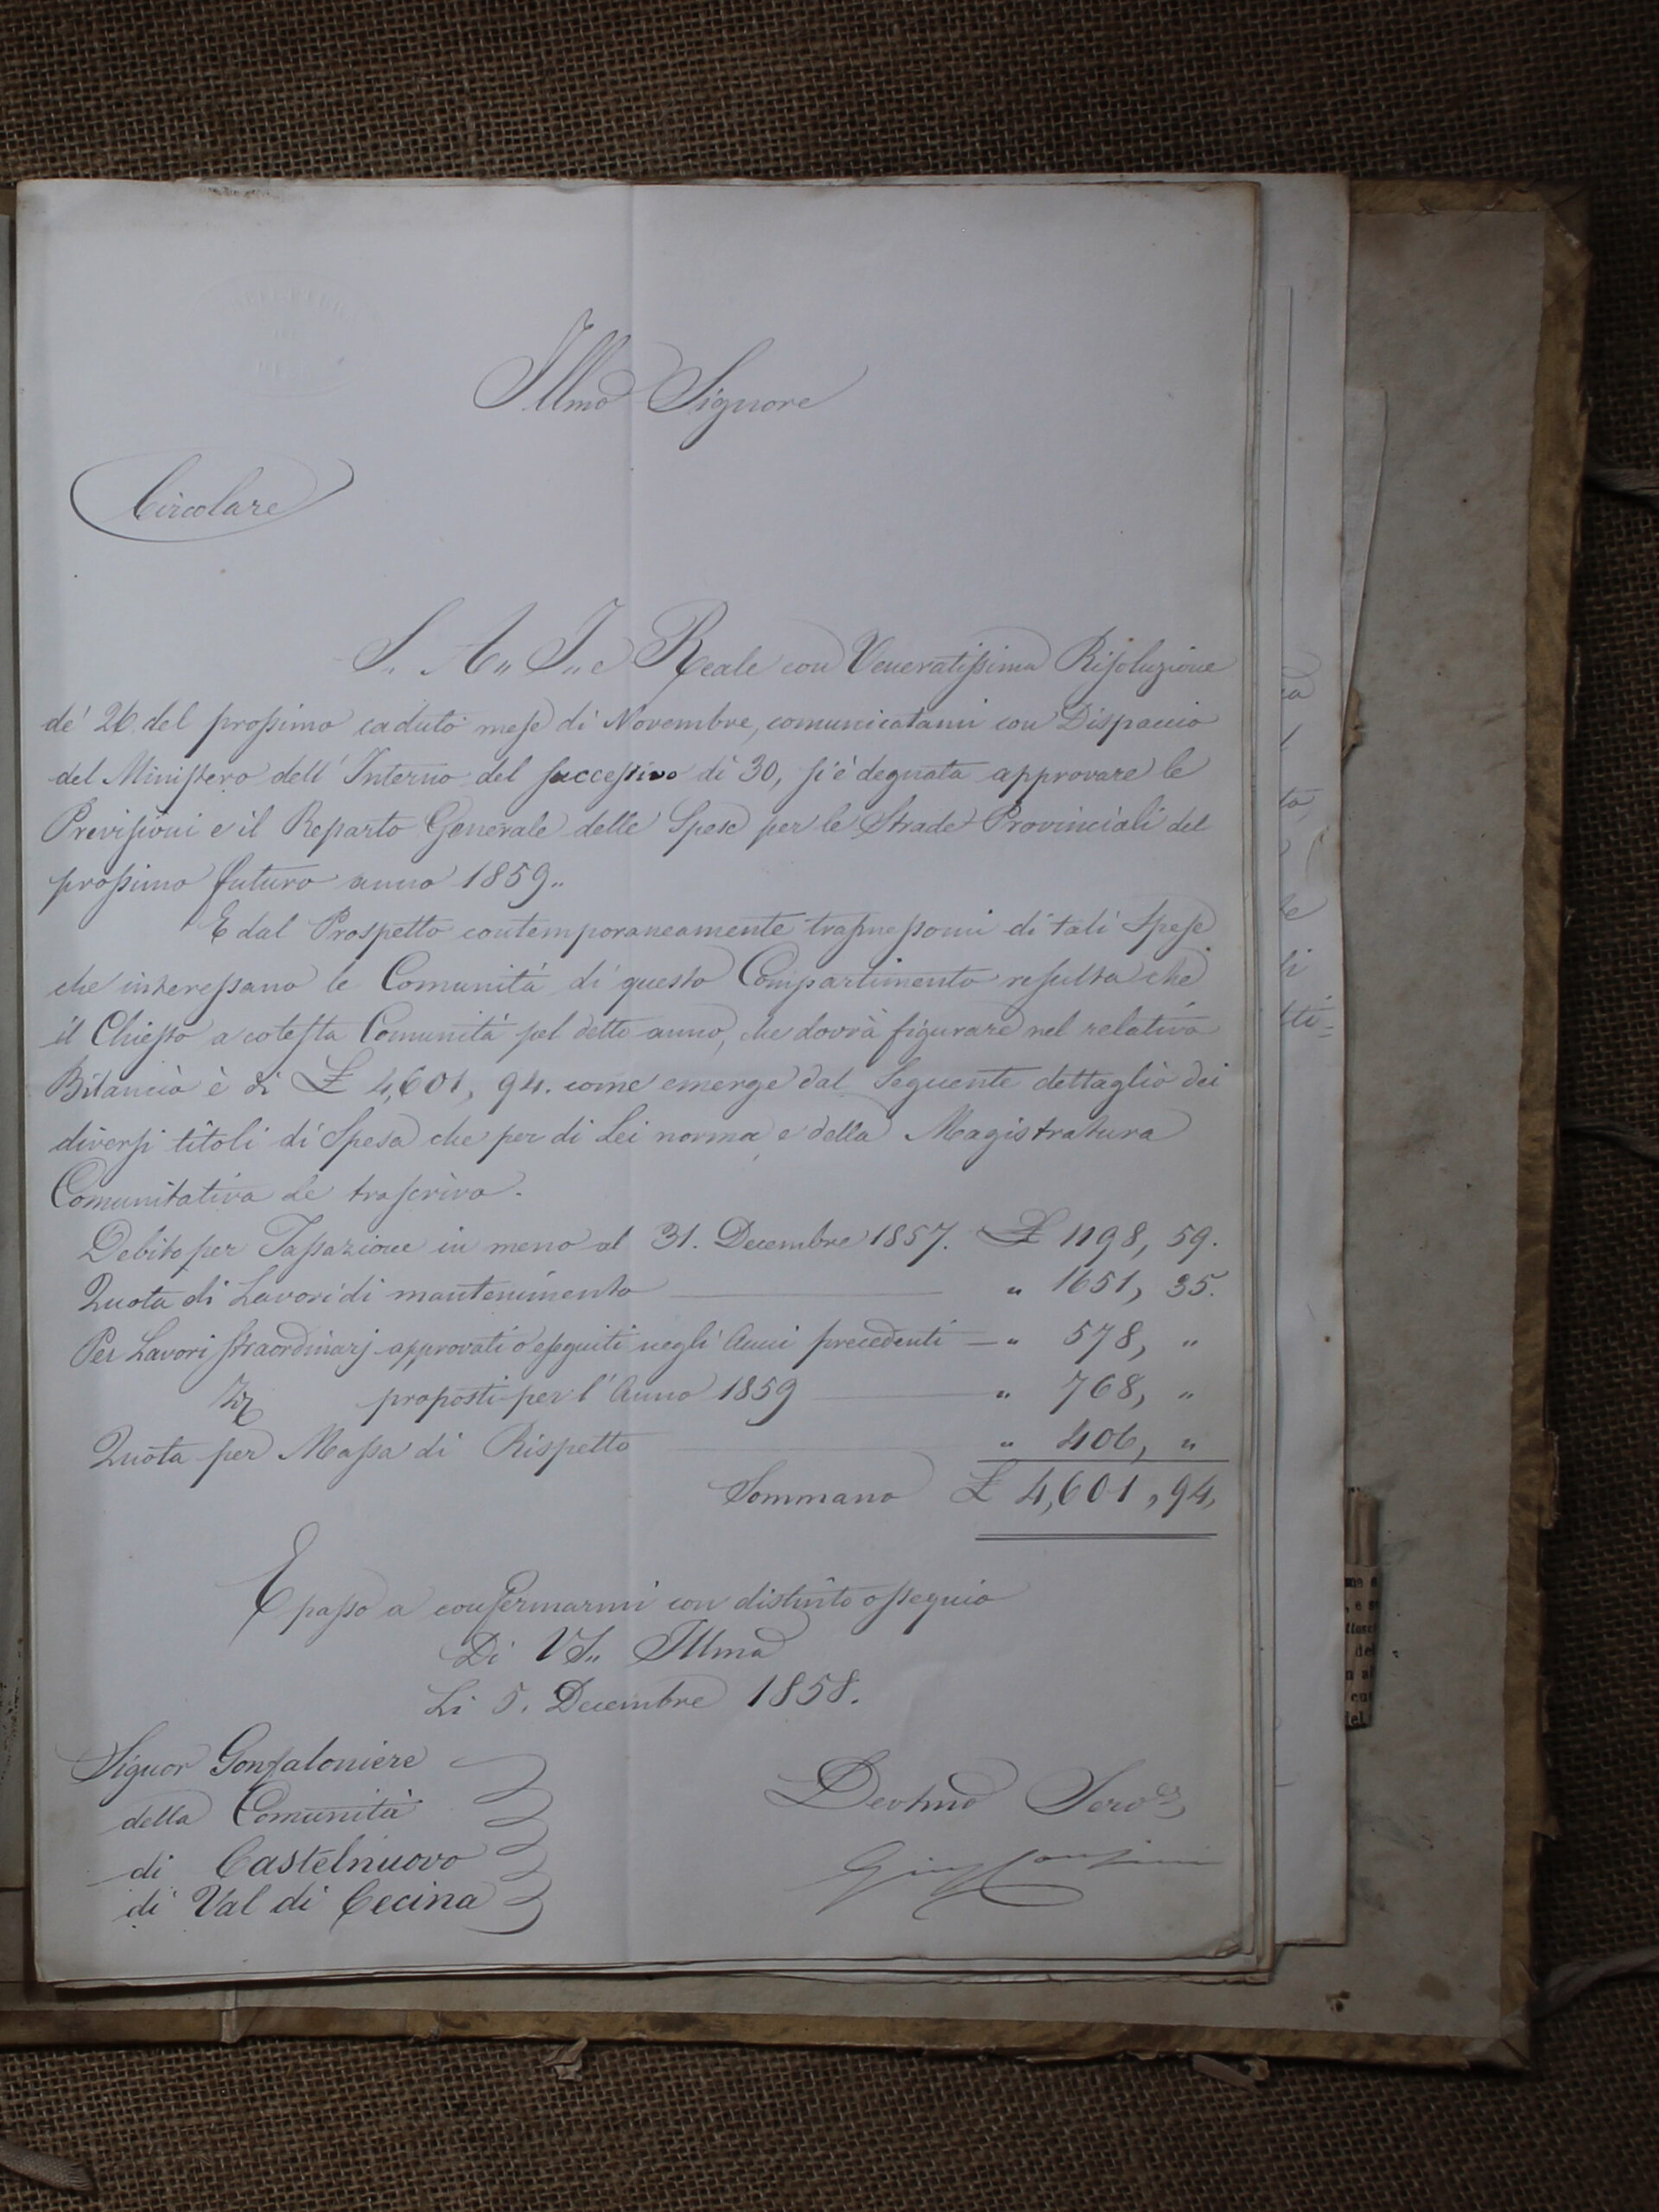 Illmo Signore
Circolare
S. A. I. e Reale con Veneratissima Risoluzione
de' 26 del prossimo caduto mese di Novembre, comunicatami con Dispaccio
del Ministero dell' Interno del successivo dì 30, si è degnata approvare le
Previsioni e il Reparto Generale delle Spese per le Strade Provinciali del
prossimo futuro anno 1859..
E dal Prospetto contemporaneamente trasmessomi di tali Spese
che interessano le Comunità di questo Compartimento resulta che
il Chiesto a cotesta Comunità pel detto anno, che dovrà figurare nel relativo
Bilancio è di £ 4,601, 94. come emerge dal Seguente dettaglio dei
diversi titoli di Spesa che per di Lei norma e della Magistratura
Comunitativa Le trascrivo.
Debito per Tassazione in meno al 31. Decembre 1857. £ 1198, 59.
Quota di Lavori di mantenimento " 1651, 35.
Per Lavori straordinarj approvati o eseguiti negli Anni precedenti — " 578, "
proposti per l' Anno 1859 " 768, "
Quota per Massa di Rispetto " 406, "
Sommano £ 4,601, 94,
E passo a confermarmi con distinto ossequio
Di VS.. Illma
Li 5. Decembre 1858.
Signor Gonfaloniere
della Comunità
di Castelnuovo
di Val di Cecina
Devmo Serv.